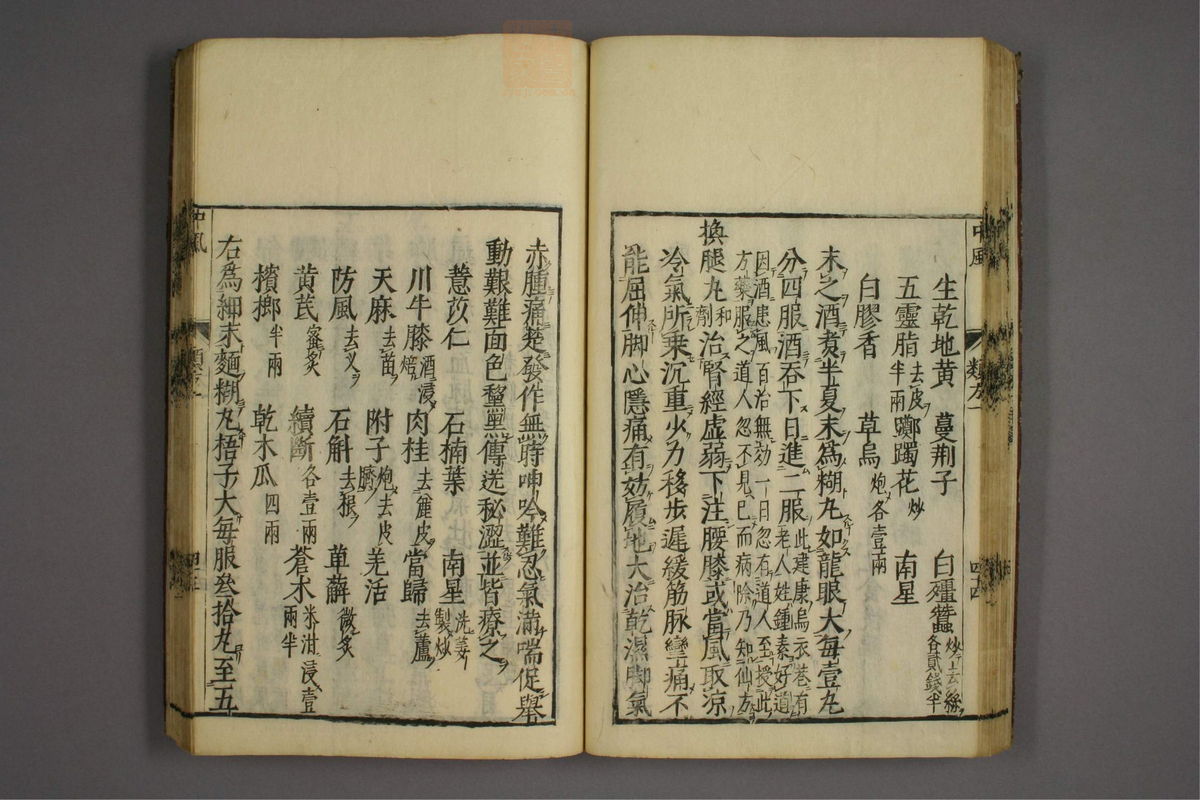 中風
類方一
四十四
生乾地黄 蔓荆子 白殭蠶炒去絲各貳錢半
五靈脂去皮半兩 躑躅花炒 南星
白膠香 草烏炮各壹兩
末之酒煑半夏末爲糊丸如龍眼大每壹丸
分四服酒吞下日進二服此建康烏衣巷有老人姓鍾素好道
因酒患風百治無効一日忽有道人至授此
方藥服之道人忽不見已而病除乃知仙方
換腿丸和劑 治腎經虚弱下注腰膝或當風取凉
冷氣所乗沉重少力移步遲緩筋脉攣痛不
能屈伸脚心隱痛有妨履地大治乾濕脚氣
赤腫痛楚發作無時呻吟難忍氣滿喘促舉
動艱難面色黧黑傳送秘澀並皆療之
薏苡仁 石楠葉 南星洗姜製炒
川牛膝酒浸焙 肉桂去麄皮 當歸去蘆
天麻去苗 附子炮去皮臍 羌活
防風去叉 石斛去根 萆薢微炙
黄芪蜜炙 續斷各壹兩 蒼术米泔浸壹兩半
檳榔半兩 乾木瓜四兩
右爲細末麵糊丸梧子大每服叁拾丸至五
中風
類方一